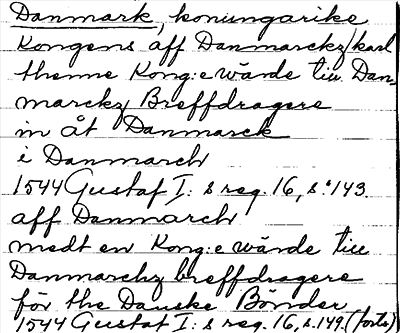 Danmark, konungarike
Kongens aff Danmarckz karl
thenne Kong:e wärde till Dan-
marckz Breffdragere
in åt Danmarck
i Danmarch
1544 Gustaf I: s reg. 16, s. 143.
aff Danmarch
medt en Kong:e wärde till
Danmarchz breffdragere
för the Danske Bönder
1544 Gustaf I: s reg. 16, s. 149 (forts)